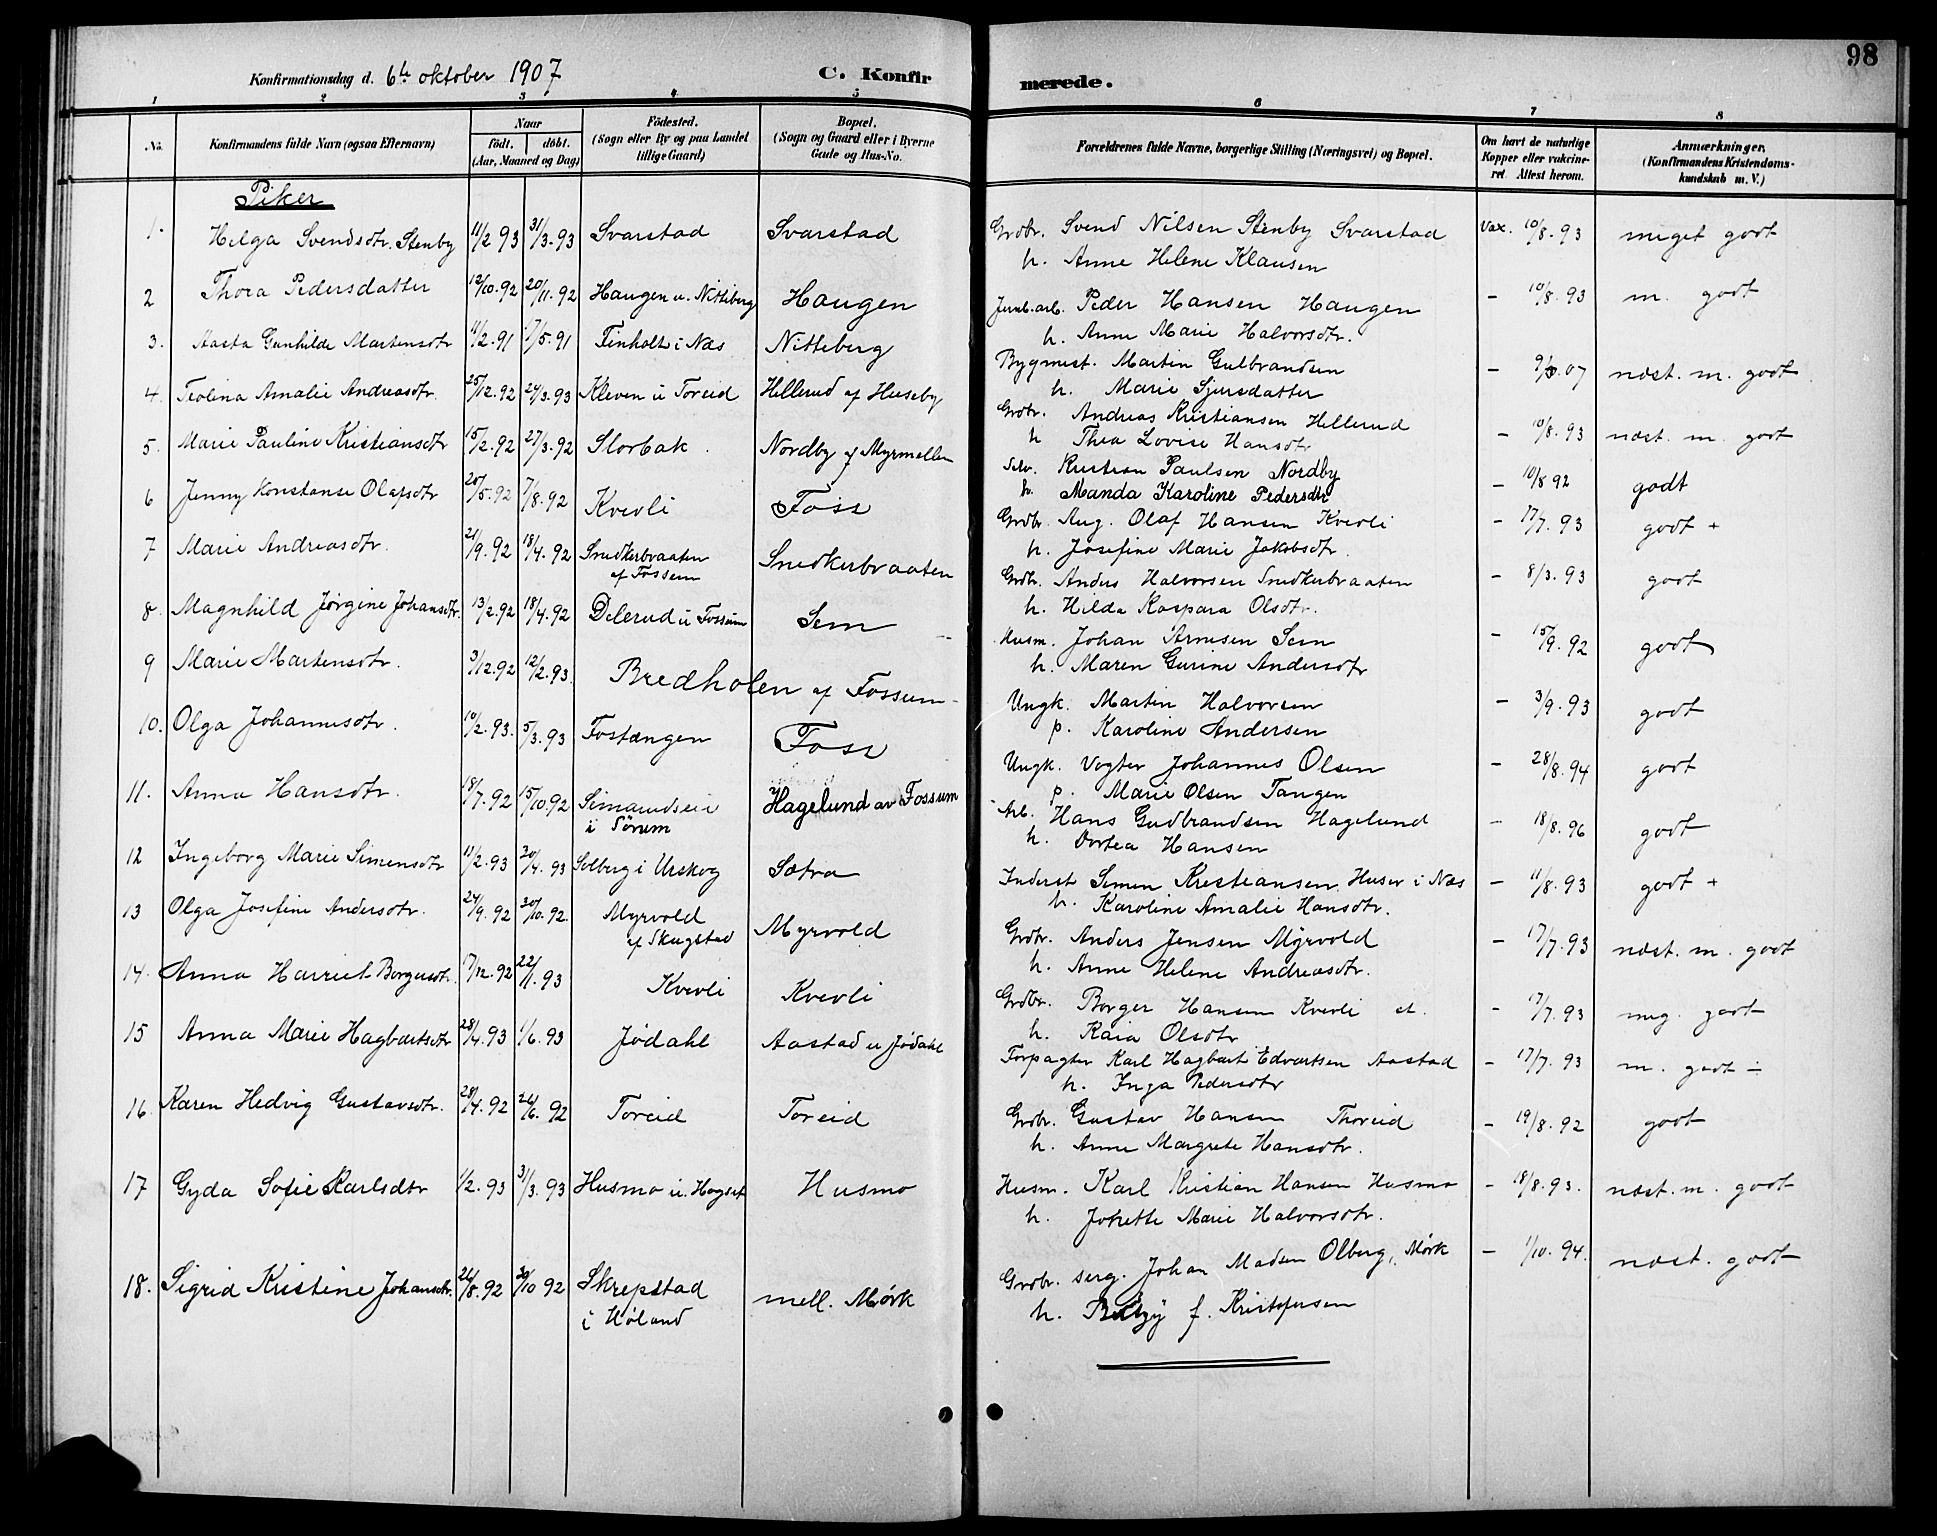 98
Konfirmationsdag d. 6te oktober 1907 C. Konfirmerede.
1 2 3 4 5 6 7 8
No. Konfirmandens fulde Navn (ogsaa Efternavn) Naar født. døbt. (Aar, Maaned og Dag) Fødested. (Sogn eller By og paa Landet tillige Gaard) Bopæl. (Sogn og Gaard eller i Byerne Gade og Hus-No. Forældrenes fulde Navne, borgerlige Stilling (Næringsvei) og Bopæl. Om havt de naturlige Kopper eller vakcineret. Attest herom. Anmærkninger. (Konfirmandens Kristendomskundskab m. V.)
Piker
1. Helga Svendsdtr. Stenby 11/2 93 31/3.93 Svarstad Svarstad Grdbr. Svend Nilsen Stenby Svarstad Vax. 10/8.93 meget godt
h. Anne Helene Klausen
2 Thora Pedersdatter 12/10.92 20/11.92 Haugen u. Nitteberg Haugen Jernb.arb. Peder Hansen Haugen - 10/8.93 m. godt
h. Anne Marie Halvorsdtr.
3. Aasta Gunhilde Martensdtr 11/2.91 17/5.91 Finholt i Næs Nitteberg Bygmest. Martin Gulbrandsen - 07 næst. m. godt
h. Marie Sjursdatter
4. Teolina Amalie Andreasdtr. 25/12.92 24/3.93 Kleven u Toreid Hillerud af Huseby Grdbr. Andreas Kristiansen Hillerud - 10/8.93 næst. m. godt
h Thea Lovise Hansdtr
5. Marie Pauline Kristiansdtr 15/2.92 27/3.92 Slorbak. Nordby af Myrmellen Selv. Kristian Paulsen Nordby - 10/8 92 godt
h. Manda Karoline Pedersdtr
6 Jenny Konstanse Olafsdtr 20/5.92 7/8.92 Kverli Foss Grdbr. Aug. Olaf Hansen Kverli - 17/7.93 godt +
h. Josefine Marie Jakobsdtr.
7 Marie Andreasdtr. 21/9.92 18/4.92 Snedkerbraaten af Fossum Snedkerbraaten Grdbr. Anders Halvorsen Snedkerbraaten - 8/3.93 godt
h. Hilda Kaspara Olsdtr.
8. Magnhild Jørgine Johansdtr. 13/2.92 18/4.92 Delerud u Fossum Sem Husm. Johan Arnesen Sem - 15/9.92 godt
h. Maren Gurine Andersdtr
9 Marie Martensdtr. 3/12.92 12/2.93. Bredholen af Fossum Ungk. Martin Halvorsen - 3/9.93 godt
p. Karoline Andersen
10. Olga Johannesdtr. 10/2.93. 5/3.93 Fostangen Foss Ungk. Vogter Johannes Olsen - 28/8.94 godt
p. Marie Olsen Tangen
11. Anna Hansdtr. 18/7.92 15/10.92 i Sørum Hagelund av Fossum Arb. Hans Gudbrandsen Hagelund - 18/8.96 godt
h. Dortea Hansen
12 Ingeborg Marie Simensdtr 11/2.93 20/4.93 Solberg i Urskog Sætra Inderst Simen Kristiansen Huser i Næs - 11/8.93 godt +
h. Karoline Amalie Hansdtr.
13 Olga Josefine Andersdtr. 24/9.92 30/10.92. Myrvold af Skugstad Myrvold Grdbr. Anders Jensen Myrvold - 17/7.93 næst. m. godt
h. Anne Helene Andreasdtr.
14. Anna Harriet Borgersdtr. 17/12.92 22/1.93 Kverli Kverli Grdbr. Borger Hansen Kverli - 17/7.93 meg. godt
h. Kaia Olsdtr
15 Anna Marie Hagbartsdtr 28/4.93 1/6.93 Jødahl Aastad u Jødahl Forpagter Karl Hagbart Edvartsen Aastad - 17/7.93 m. godt ÷
h. Inga Pedersdtr
16. Karen Hedvig Gustavsdtr. 28/4.92 26/6.92 Toreid Toreid Grdbr. Gustav Hansen Thoreid - 19/8.92 godt
h. Anne Margrete Hansdtr.
17 Gyda Sofie Karlsdtr 1/2.93 31/3.93 Husmo u. Hogset Husmo Husm. Karl Kristian Hansen Husmo - 18/8.93. næst. m. godt
h. Johette Marie Halvorsdtr.
18. Sigrid Kristine Johansdtr. 26/8.92 30/10 92 Skrepstad i Høland mell. Mørk Grdbr. serg. Johan Madsen Olberg, Mørk - 1/10.94. næst. godt
h. f. Kristofersen